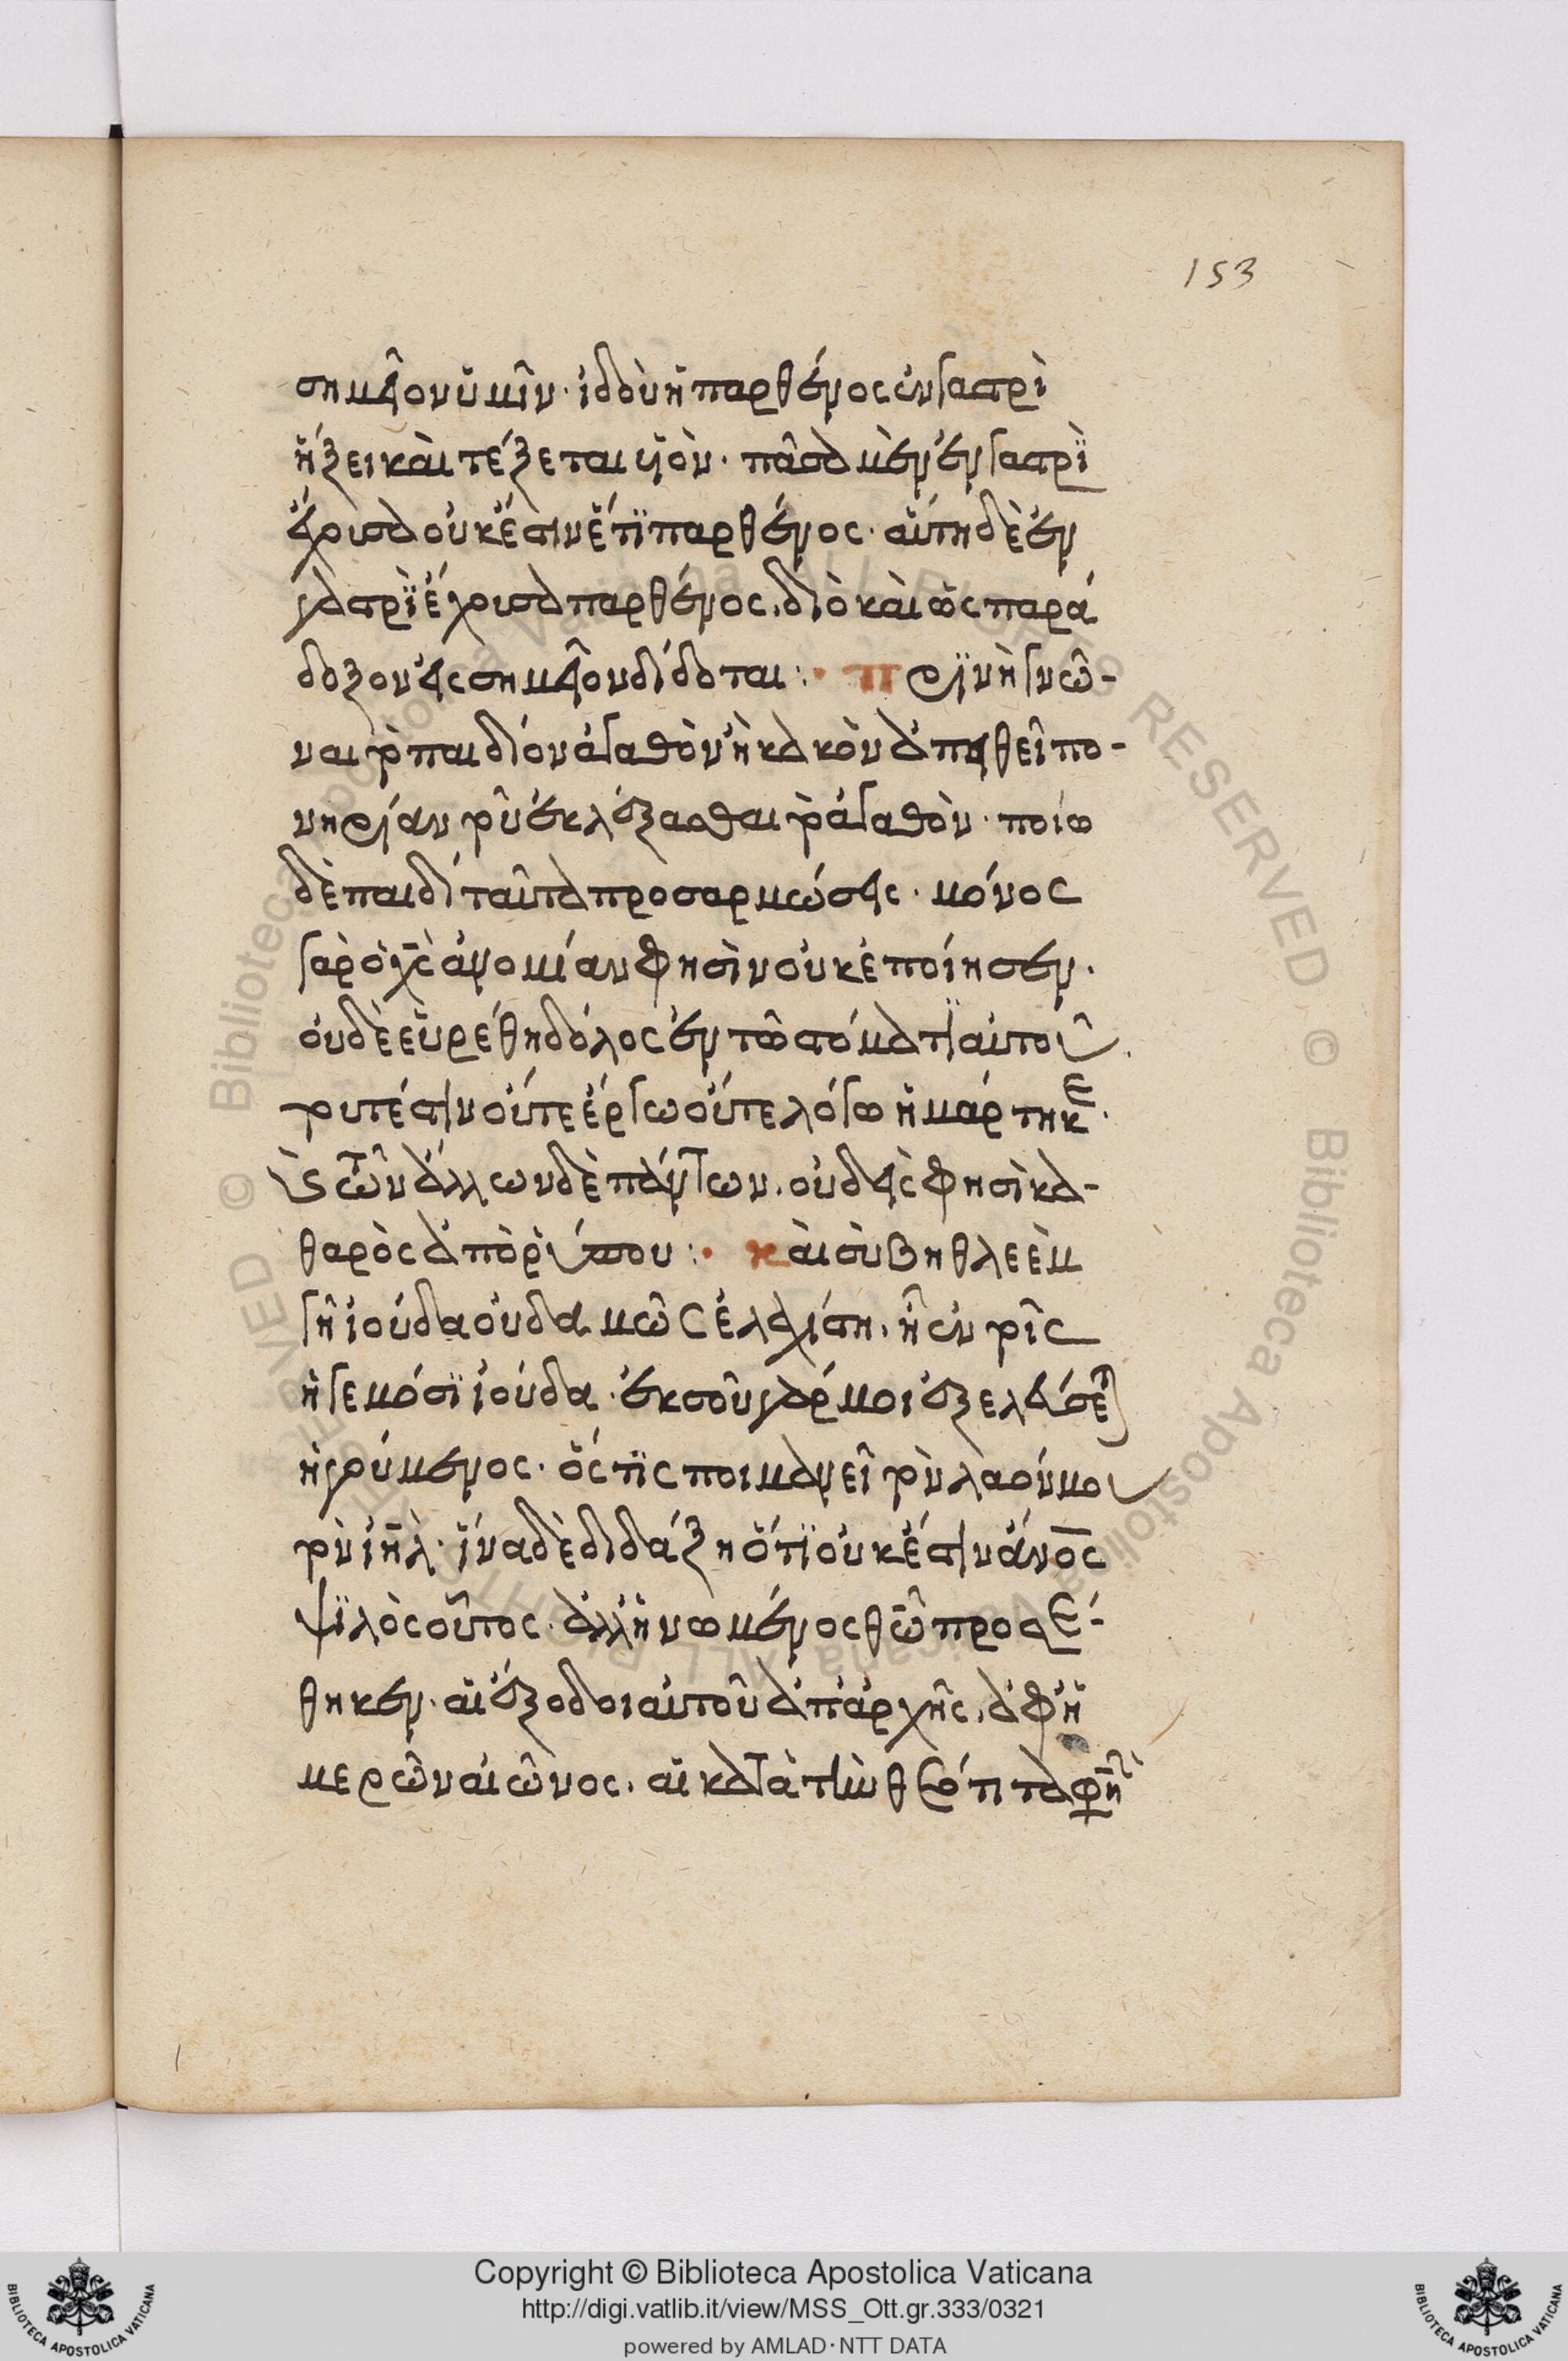 153
σημεῖον ὑμῖν· ἰδοὺ ἡ παρθένος ἐν γαστρὶ
ἥξει καὶ τέξεται υἱὸν· πᾶσα μὲν ἐν γαστρὶ
ἔχουσα οὐκ ἔστιν ἔτι παρθένος· αὕτη δὲ ἐν
γαστρὶ ἔχουσα παρθένος, διὸ καὶ ὡς παρά
δοξον εἰς σημεῖον δίδοται:· Πρὶν ἢ γνῶ-
ναι τὸ παιδίον ἀγαθὸν ἢ κακὸν ἀπειθεῖ πο-
νηρίαν τοῦ ἐκλέξασθαι τὸ ἀγαθὸν· ποίω
δὲ παιδὶ ταῦτα προσαρμώσεις· μόνος
γὰρ ὁ χς ἀνομίαν φησὶν οὐκ ἐποίησεν·
οὐδὲ εὑρέθη δόλος ἐν τῶ στόματι αὐτοῦ.
τουτέστιν οὔτε ἔργω οὔτε λόγω ἡμάρτηκε·
ἐς τῶν ἄλλων δὲ πάντων. οὐδεὶς φησὶ κα-
θαρὸς ἀπὸ ῥύπου:· Καὶ σὺ βηθλεὲμ
γῆ ἰούδα οὐδαμῶς ἐλαχίστη. ἢ ἐν τοῖς
ἡγεμόσιν ἰούδα· ἐκ σοῦ γάρ μοι ἐξελεύσεται
ἡγούμενος· ὅς τις ποιμανεῖ τὸν λαόν μου
τὸν ιηλ· ἵνα δὲ διδάξη ὅτι οὐκ ἔστιν ἄνος
ψιλὸς οὗτος· ἀλλ' ἡνωμένος θῶ προσέ-
θηκεν· αἱ ἔξοδοι αὐτοῦ ἀπ' ἀρχῆς. ἀφ' ἡ
μερῶν αἰῶνος. αἱ κατὰ τὴν θεότητα φησὶ
Copyright © Biblioteca Apostolica Vaticana
http://digi.vatlib.it/view/MSS_Ott.gr.333/0321
powered by AMLAD·NTT DATA